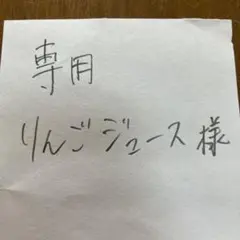 専用
りんごジュース様